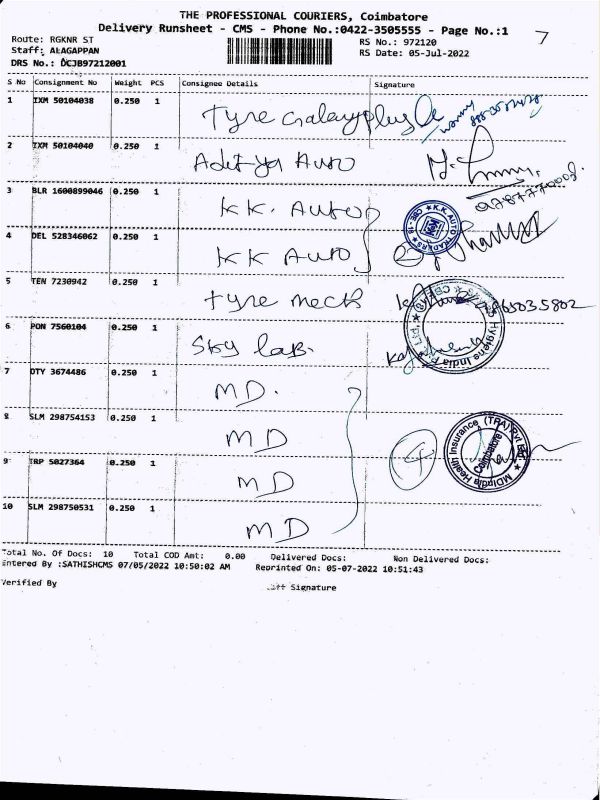 THE PROFESSIONAL COURIERS, Coimbatore
Delivery Runsheet - CMS - Phone No.:0422-3505555 - Page No.:1
7
Route: RGKNR ST
RS No.: 972120
Staff: ALAGAPPAN
RS Date: 05-Jul-2022
DRS No.: DCJB97212001
S No Consignment No Weight PCS Consignee Details Signature
1 IXM 50104038 0.250 1 Tyre Galaxy plus
2 IXM 50104040 0.250 1 Aditya Auto
3 BLR 1600899046 0.250 1 KK. Auto
K.K AUTO TRADERS CBE-18
4 DEL 528346062 0.250 1 KK Auto
2
5 TEN 7230942 0.250 1 Tyre mech
6 PON 7560104 0.250 1 Sky lab.
Hygiene India Pvt. Ltd.
7 DTY 3674486 0.250 1 MD.
8 SLM 298754153 0.250 1 MD
4
MDIndia Health Insurance (TPA) Pvt Ltd
Coimbatore
9 TRP 5027364 0.250 1 MD
10 SLM 298750531 0.250 1 MD
Total No. Of Docs: 10 Total COD Amt: 0.00 Delivered Docs: Non Delivered Docs:
Entered By :SATHISHCMS 07/05/2022 10:50:02 AM Reprinted On: 05-07-2022 10:51:43
Verified By
Signature